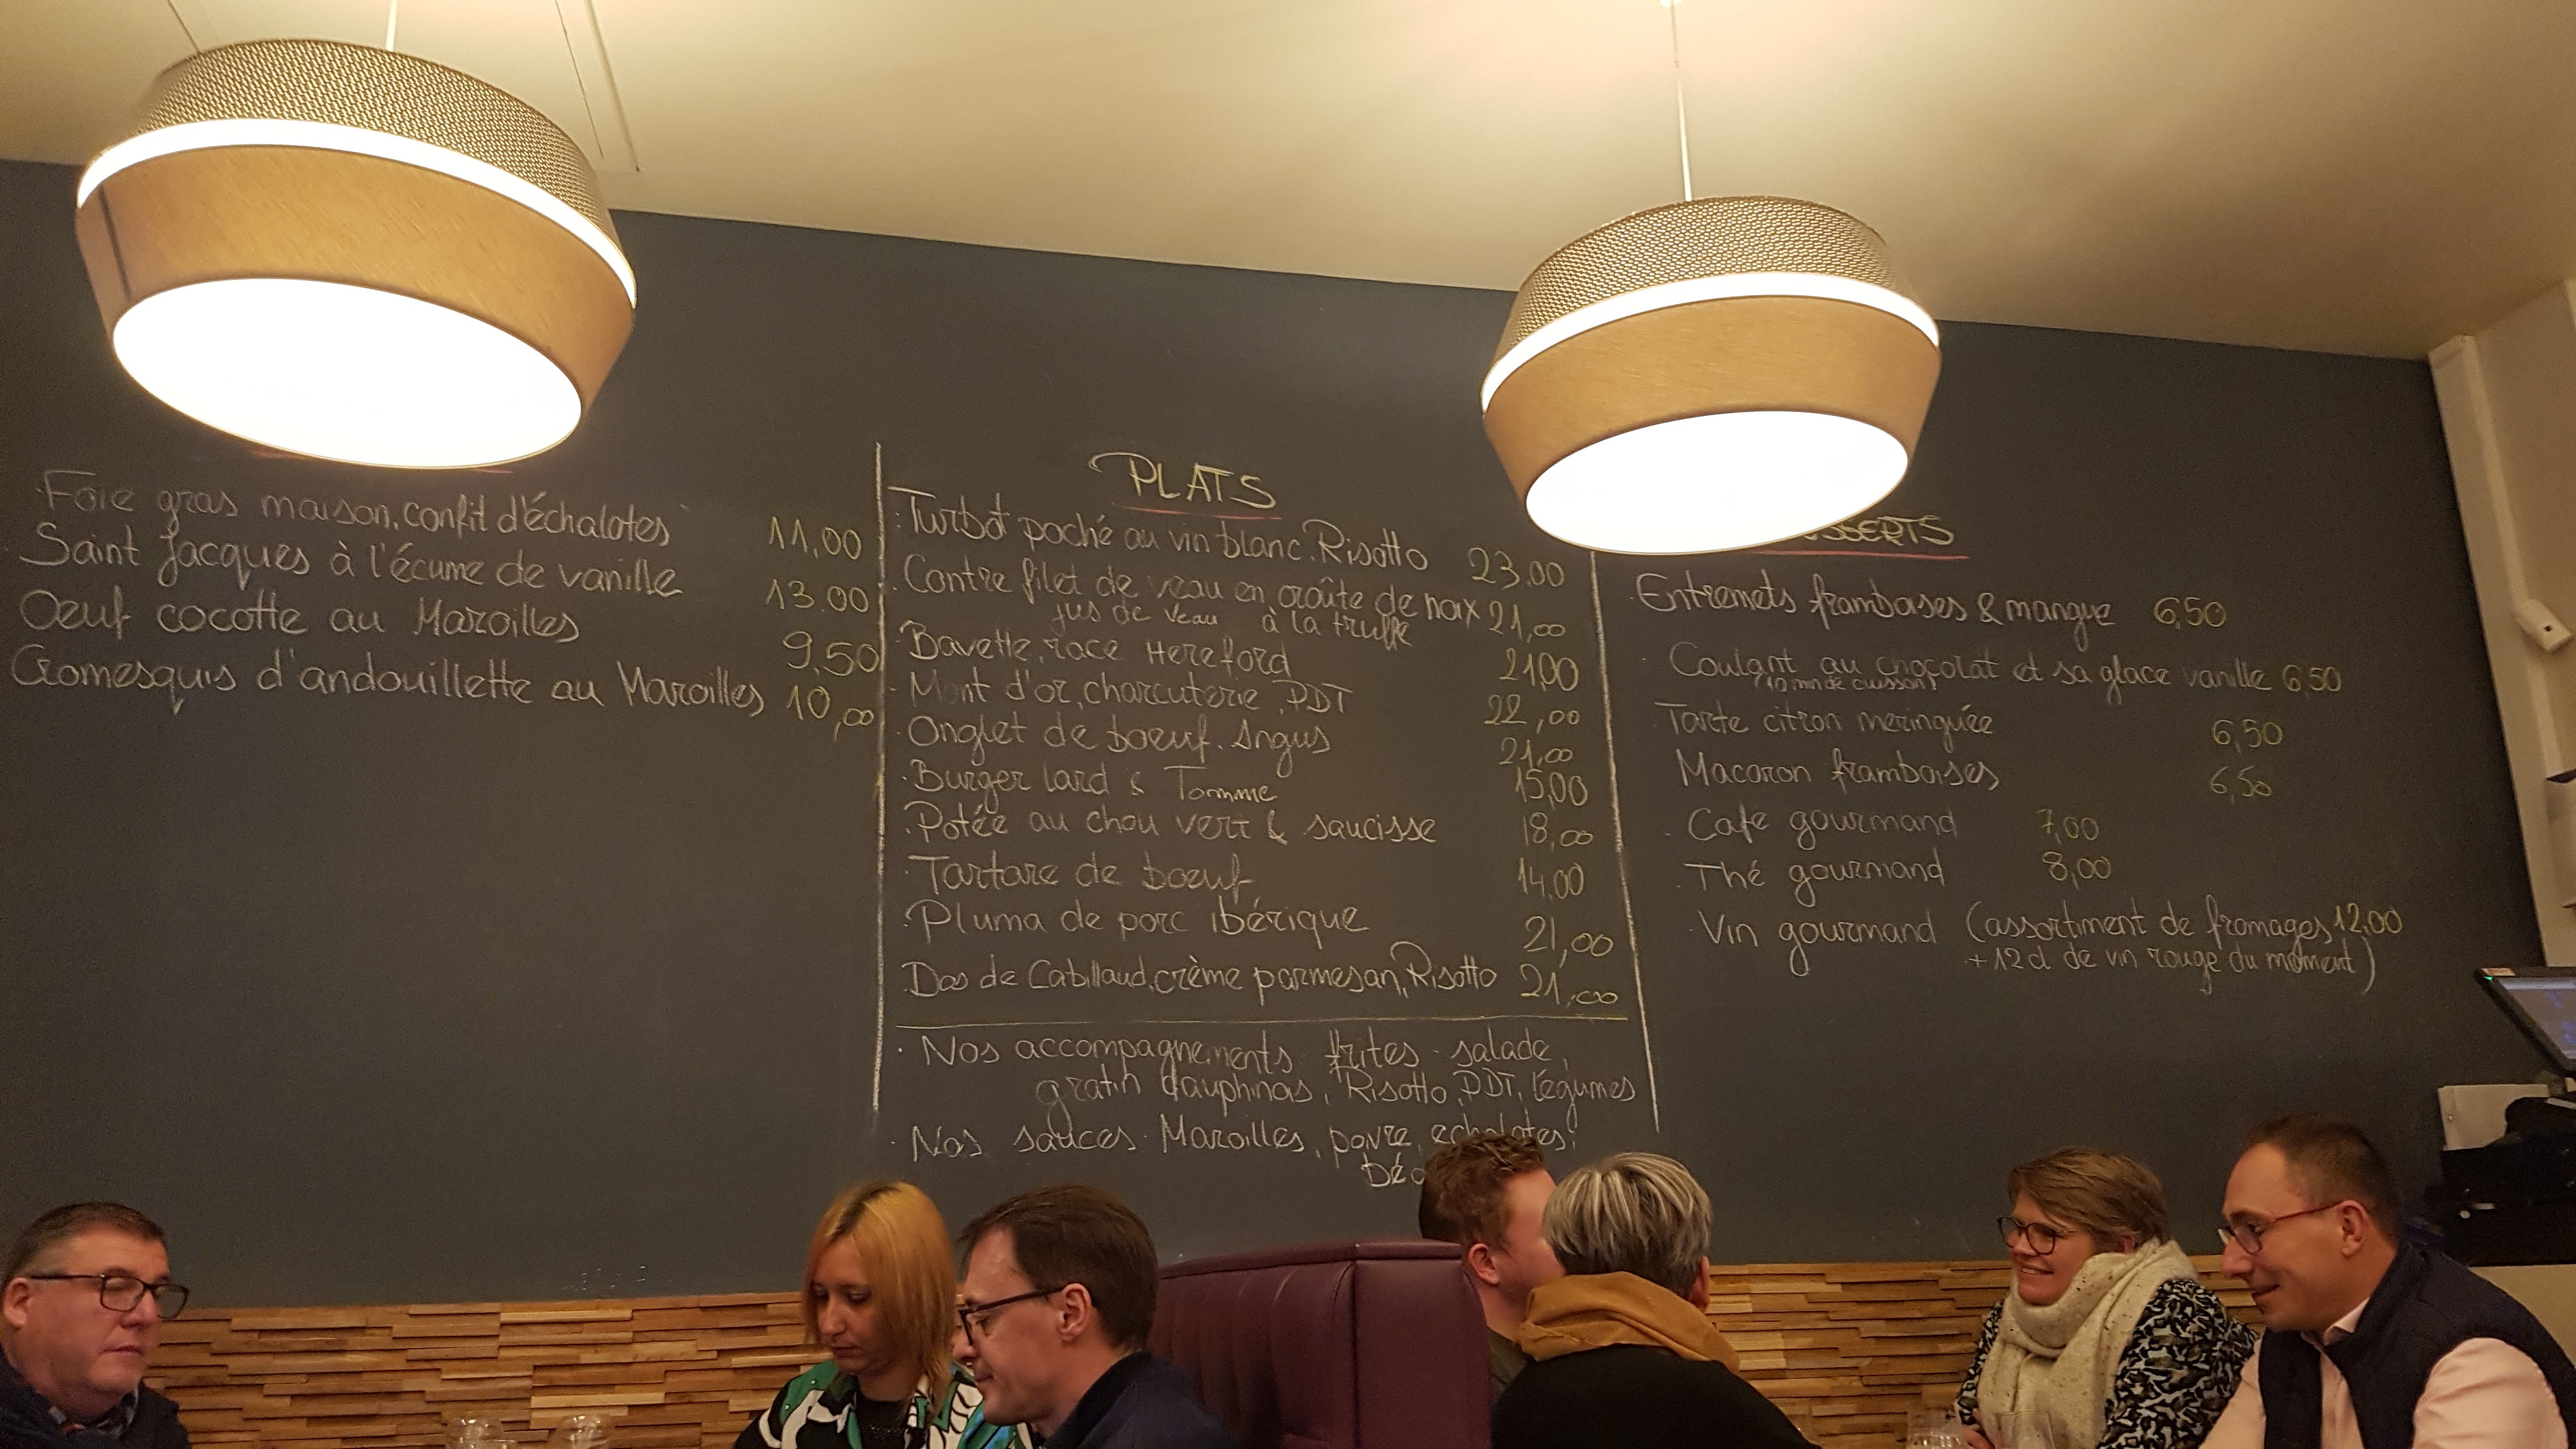 Foie gras maison, confit d'échalotes 11,00
Saint Jacques à l'écume de vanille 13.00
Oeuf cocotte au Maroilles 9,50
Cromesquis d'andouillette au Maroilles 10,00
PLATS
· Turbot poché au vin blanc. Risotto 23.00
· Contre filet de veau en croûte de noix 21,00
jus de veau à la truffe
· Bavette, race Hereford 21,00
· Mont d'or, charcuterie, PDT 22,00
· Onglet de boeuf. Angus 21,00
· Burger lard & Tomme 15,00
· Potée au chou vert & saucisse 18,00
· Tartare de boeuf 14,00
· Pluma de porc ibérique 21,00
· Dos de Cabillaud, crème parmesan, Risotto 21,00
· Nos accompagnements frites - salade,
gratin dauphinois, Risotto, PDT, légumes
· Nos sauces. Maroilles, poivre, echalotes,
· Entremets framboises & mangue 6,50
· Coulant au chocolat et sa glace vanille 6,50
(10 mn de cuisson)
· Tarte citron meringuée 6,50
· Macaron framboises 6,50
· Café gourmand 7,00
· Thé gourmand 8,00
· Vin gourmand (assortiment de fromages 12,00
+ 12cl de vin rouge du moment)